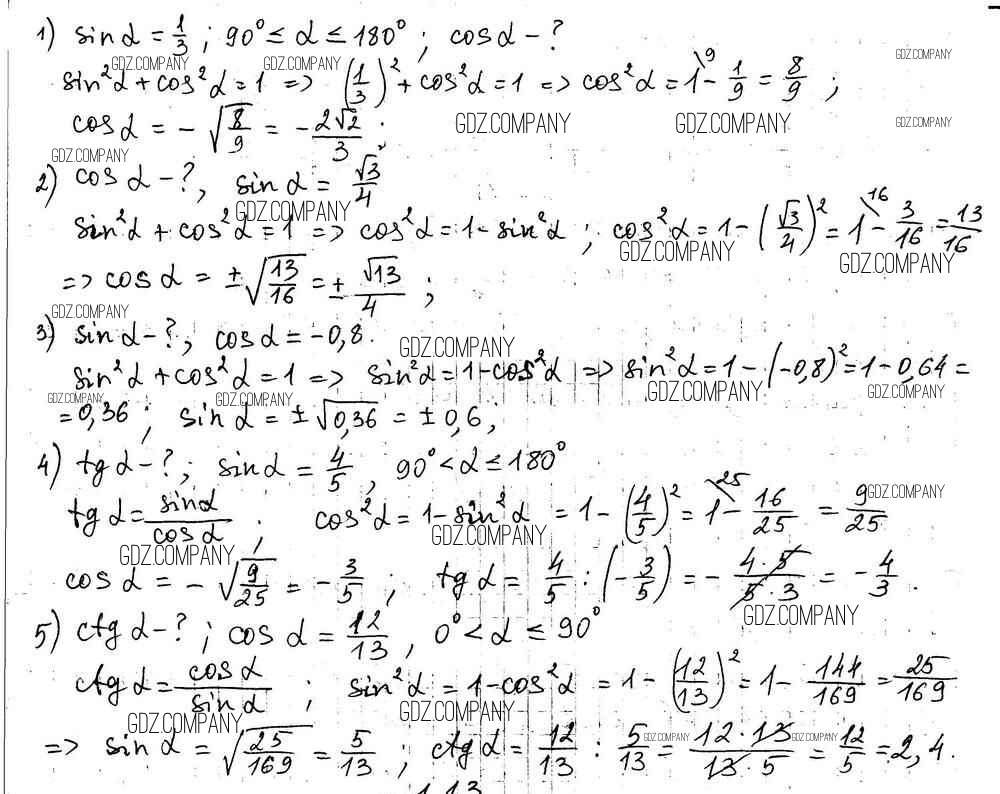 1) sin α = 1/3 ; 90° ≤ α ≤ 180° ; cos α - ?
GDZ.COMPANY GDZ.COMPANY GDZ.COMPANY
sin²α + cos²α = 1 => (1/3)² + cos²α = 1 => cos²α = 1 \9 - 1/9 = 8/9 ;
cos α = - √(8/9) = - 2√2/3 .
GDZ.COMPANY GDZ.COMPANY GDZ.COMPANY
GDZ.COMPANY
2) cos α - ?, sin α = √3/4
GDZ.COMPANY
sin²α + cos²α = 1 => cos²α = 1 - sin²α ; cos²α = 1 - (√3/4)² = 1 \16 - 3/16 = 13/16
GDZ.COMPANY GDZ.COMPANY
=> cos α = ± √(13/16) = ± √13/4 ;
GDZ.COMPANY
3) sin α - ?, cos α = -0,8.
GDZ.COMPANY
sin²α + cos²α = 1 => sin²α = 1 - cos²α => sin²α = 1 - (-0,8)² = 1 - 0,64 =
GDZ.COMPANY GDZ.COMPANY GDZ.COMPANY GDZ.COMPANY
= 0,36 ; sin α = ± √0,36 = ± 0,6 ;
4) tg α - ? ; sin α = 4/5 , 90° < α ≤ 180°
GDZ.COMPANY
tg α = sin α/cos α ; cos²α = 1 - sin²α = 1 - (4/5)² = 1 \25 - 16/25 = 9/25
GDZ.COMPANY GDZ.COMPANY
cos α = - √(9/25) = - 3/5 ; tg α = 4/5 : (- 3/5) = - 4·5/5·3 = - 4/3 .
GDZ.COMPANY
5) ctg α - ? ; cos α = 12/13 , 0° < α ≤ 90°
ctg α = cos α/sin α ; sin²α = 1 - cos²α = 1 - (12/13)² = 1 - 144/169 = 25/169
GDZ.COMPANY GDZ.COMPANY
=> sin α = √(25/169) = 5/13 ; ctg α = 12/13 : 5/13 = 12·13/13·5 = 12/5 = 2,4.
GDZ.COMPANY GDZ.COMPANY